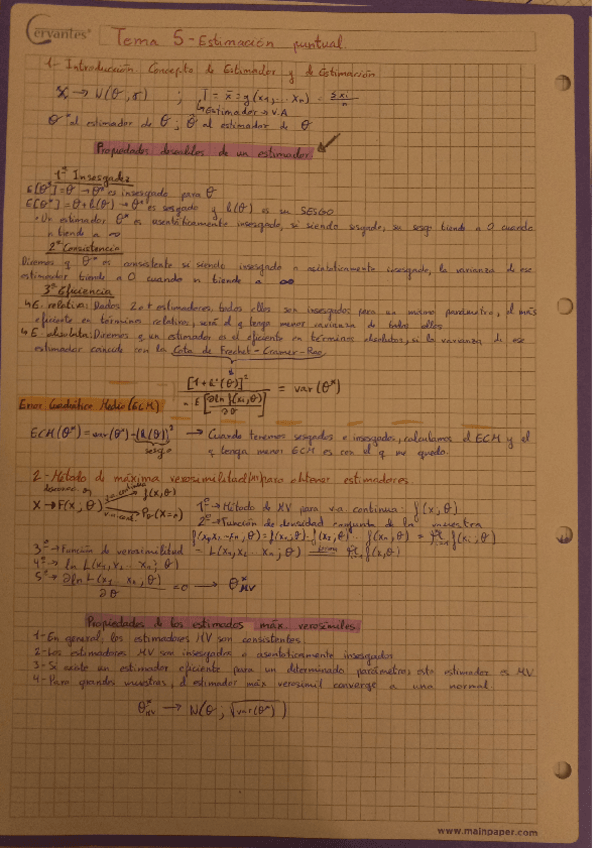 Cervantes®
Tema 5 - Estimación puntual.
1- Introducción. Concepto de Estimador y de Estimación
X → N(θ, σ) ; T = x̄ = g(x1, ... xn) = Σxi/n
↳ Estimador → V.A
θ* al estimador de θ ; θ̂ al estimador de θ
Propiedades deseables de un estimador
1º Insesgadez
E[θ*] = θ → θ* es insesgado para θ
E[θ*] = θ + b(θ) → θ* es sesgado y b(θ) es un SESGO
- Un estimador θ* es asentóticamente insesgado, si siendo sesgado, su sesgo tiende a 0 cuando
n tiende a ∞
2º Consistencia
Diremos q θ* es consistente si siendo insesgado o asintóticamente insesgado, la varianza de ese
estimador tiende a 0 cuando n tiende a ∞
3º Eficiencia
↳ E. relativa: Dados 2 o + estimadores, todos ellos son insesgados para un mismo parámetro, el más
eficiente en términos relativos, será el q tenga menor varianza de todos ellos
↳ E absoluta: Diremos q un estimador es el eficiente en términos absolutos, si la varianza de ese
estimador coincide con la Cota de Frechet-Cramer-Rao.
[1 + b'(θ)]² / n · E [∂ln f(xi, θ) / ∂θ]² = var(θ*)
Error Cuadrático Medio (ECM)
ECM(θ*) = var(θ*) - [b(θ)]² → Cuando tenemos sesgados o insesgados, calculamos el ECM y el
sesgo q tenga menor ECM es con el q me quedo.
2- Método de máxima verosimilitud (MV) para obtener estimadores.
X → F(x, θ) f(x, θ) 1º → Método de MV para v.a continua: f(x, θ)
2º → Función de densidad conjunta de la muestra
f(x1, x2 ... xn, θ) = f(x1, θ) · f(x2, θ) ... f(xn, θ) = f(xi, θ)
3º → Función de verosimilitud - L(x1, x2 ... xn; θ) f(xi, θ)
4º → ln L(x1, x2 ... xn; θ)
5º → ∂ln L(x1 ... xn, θ) / ∂θ = 0 → θ*MV
Propiedades de los estimados máx. verosímiles.
1- En general, los estimadores MV son consistentes
2- Los estimadores MV son insesgados o asentóticamente insesgados
3- Si existe un estimador eficiente para un determinado parámetro, este estimador es MV
4- Para grandes muestras, el estimador máx verosímil converge a una normal.
θ*MV → N(θ, √var(θ*))
www.mainpaper.com